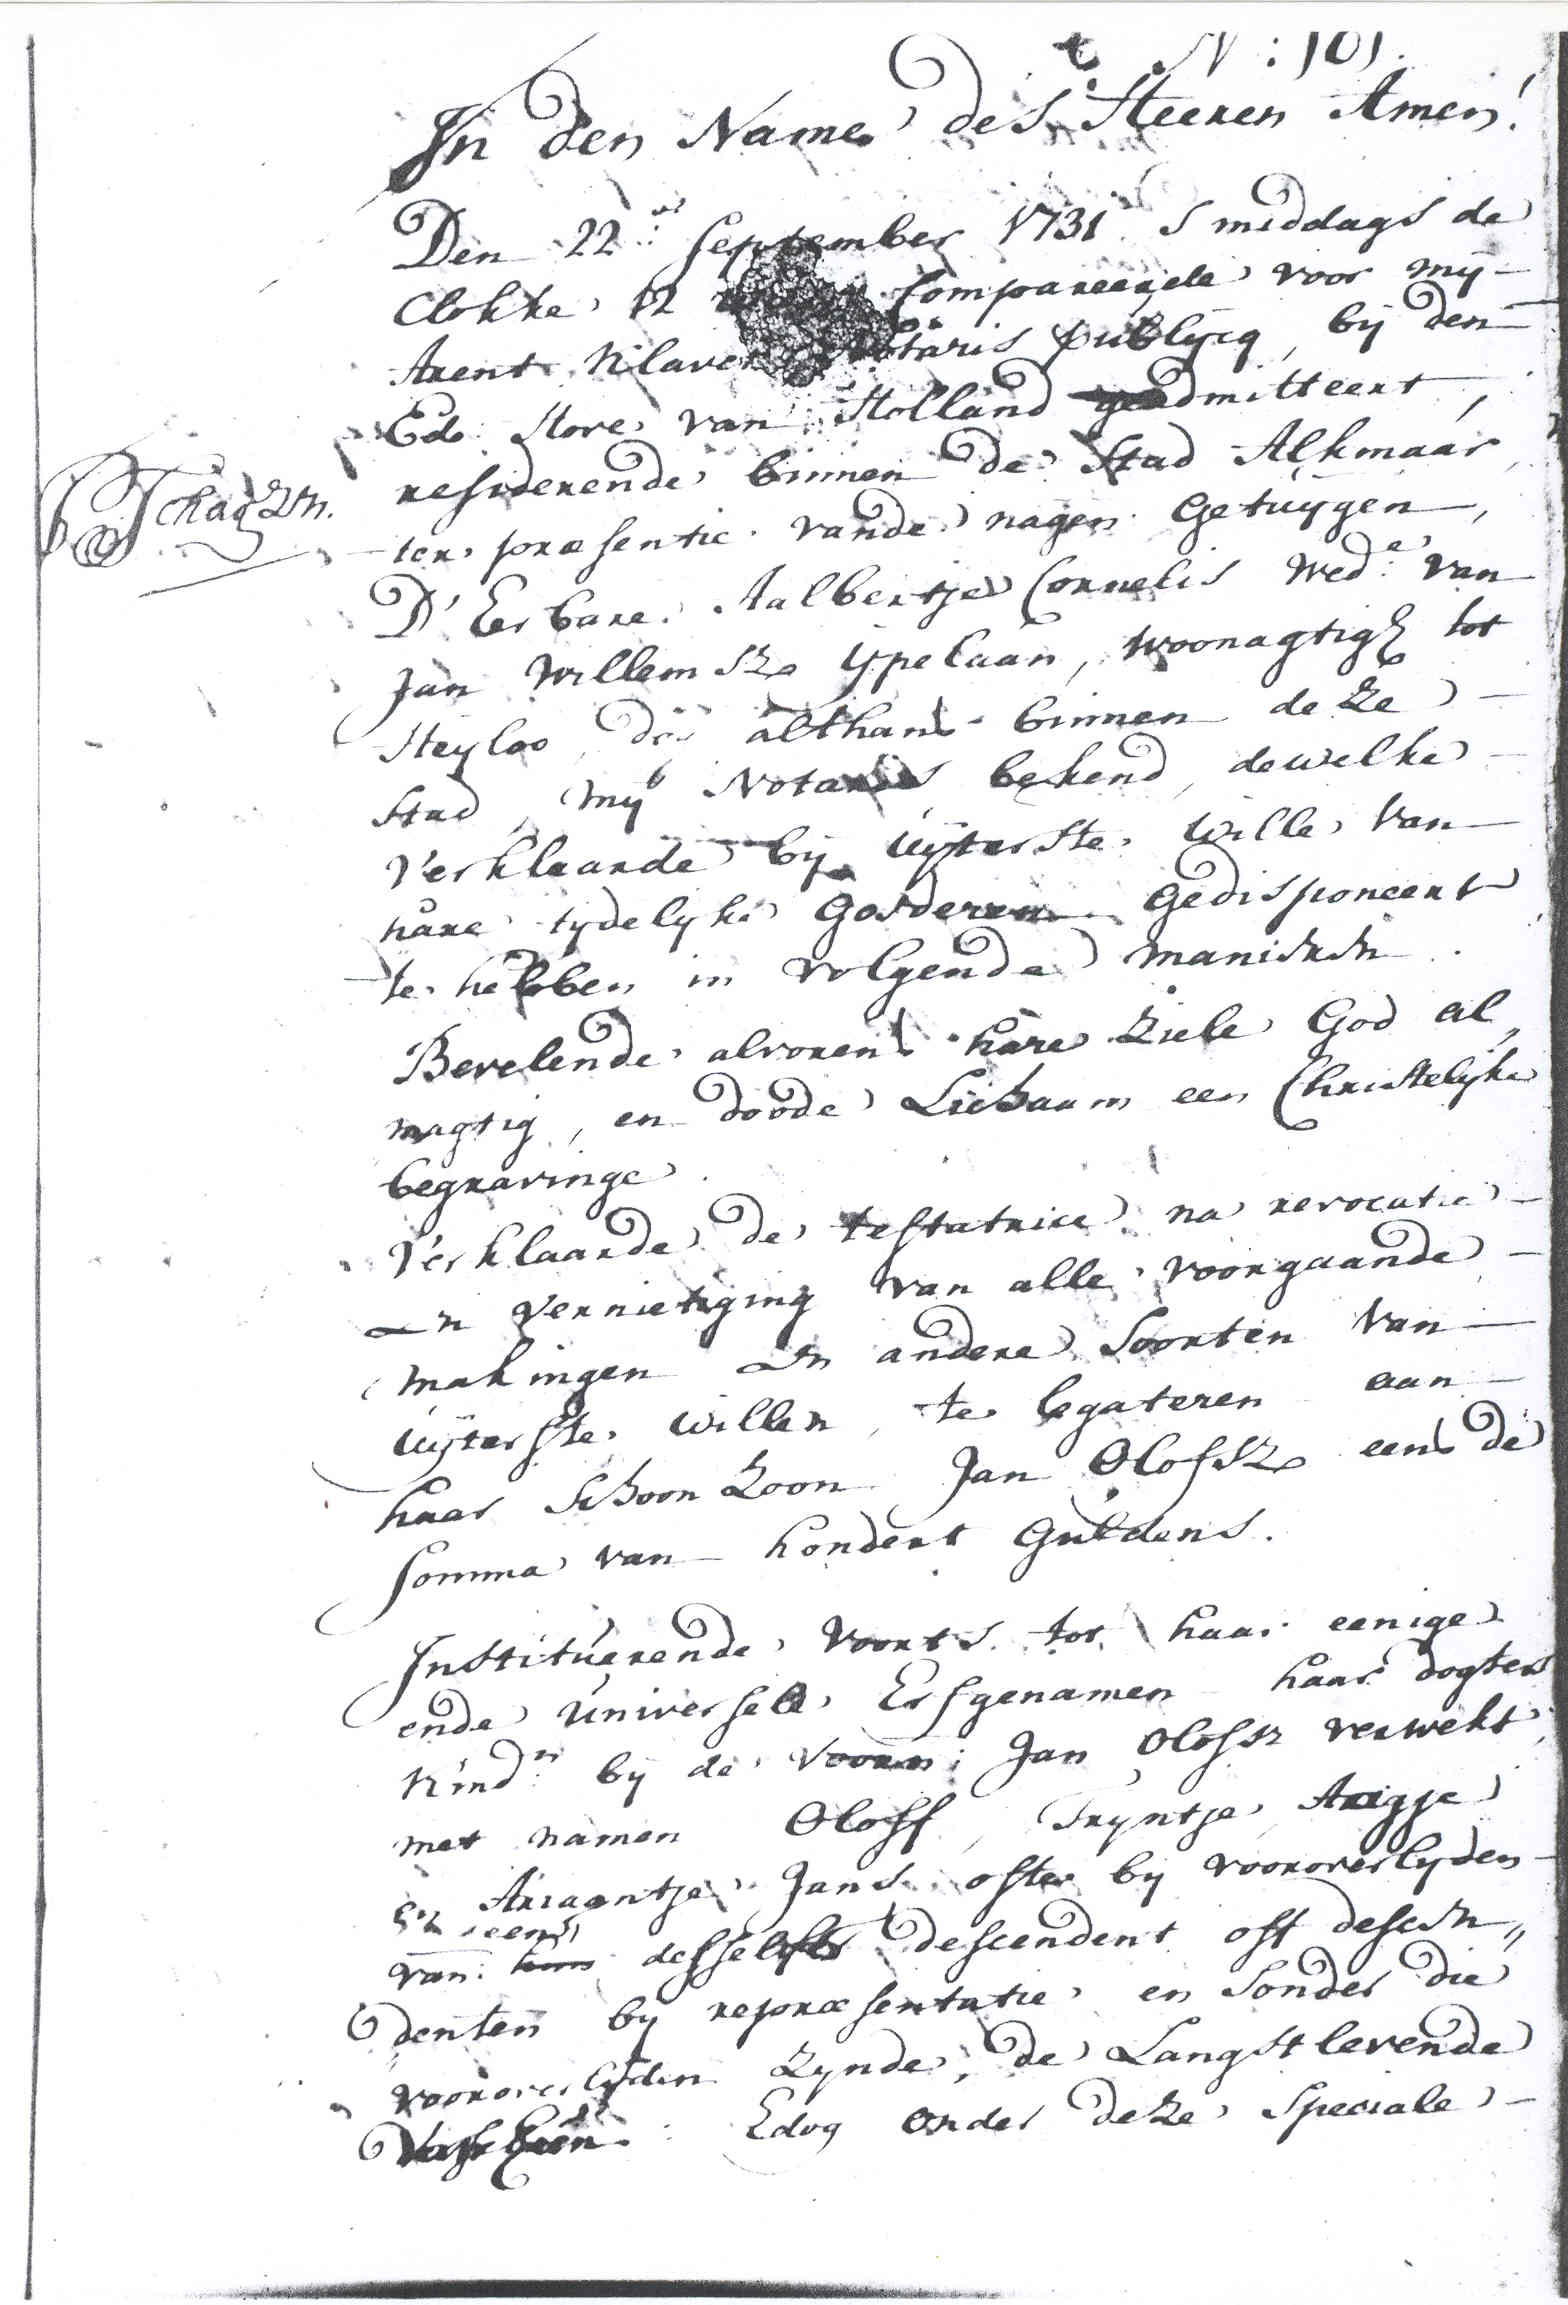 N: 101.
In den Name des Heeren Amen!
Den 22: september 1731 s middags de
Clokke 12 compareerde voor mij
Arent Klaver Notaris publijcq, bij den
Ed: Hove van Holland geadmitteert,
residerende binnen de Stad Alkmaar,
ter præsentie vande nagen: Getuijgen,
D' Eerbare Aalbertje Cornelis wed:e van
Jan Willemsz ijpelaan, woonagtigh tot
Heyloo, dog althans binnen deze
Stad, mij Notaris bekend, dewelke
Verklaarde bij uijterste wille van
hare tydelyke Goederen Gedisponeert
te hebben in volgende manieren.
Bevelende alvorens hare Ziele God al„
magtig, en doode Lichaam een Christelijke
begravinge.
Verklaarde de testatrice na revocatie
en vernietiging van alle voorgaande
makingen en andere Soorten van
uijterste willen, te legateren aan
haar schoon Zoon Jan Olofsz eens de
somma van hondert Guldens.
Instituerende voorts tot haar eenige
ende universele Erfgenamen haar dogters
kind:n bij de voorn: Jan Olofsz verwekt,
met namen Oloff, Tryntje,
en Ariaantje Jans ofte bij vooroverlyden
een
van desselfs descendent oft descen„
denten by repræsentatie en sonder die
vooroverlyden Zynde, de Langstlevende
Edog onder deze Speciale